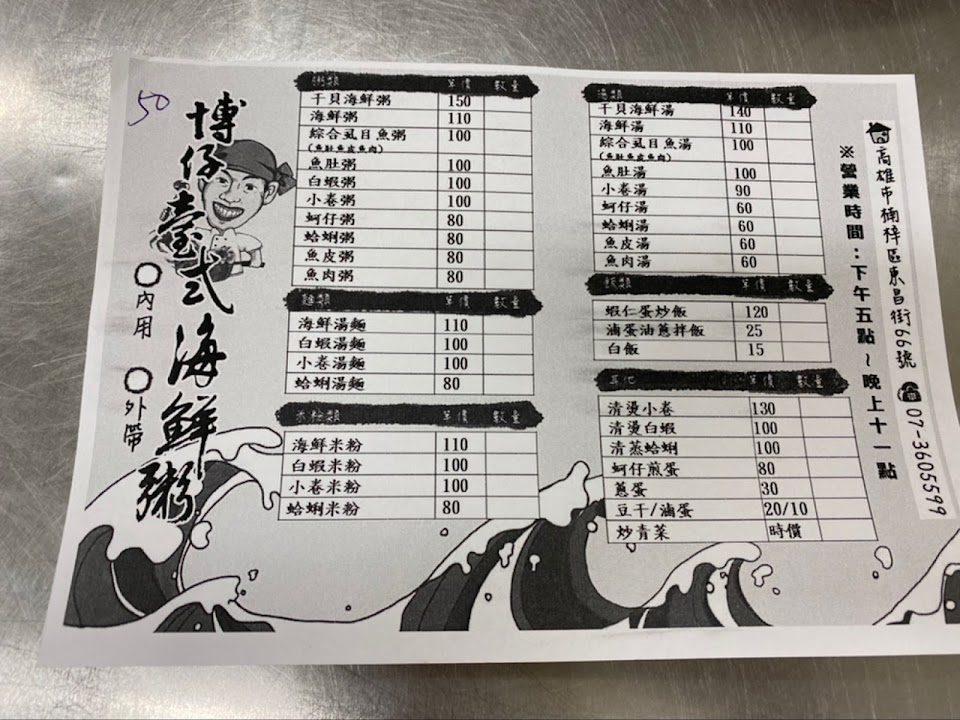 50
博仔臺式海鮮粥
內用
外帶
粥類 單價 數量
干貝海鮮粥 150
海鮮粥 110
綜合虱目魚粥 100
(魚肚魚皮魚肉)
魚肚粥 100
白蝦粥 100
小卷粥 100
蚵仔粥 80
蛤蜊粥 80
魚皮粥 80
魚肉粥 80
麵類 單價 數量
海鮮湯麵 110
白蝦湯麵 100
小卷湯麵 100
蛤蜊湯麵 80
米粉類 單價 數量
海鮮米粉 110
白蝦米粉 100
小卷米粉 100
蛤蜊米粉 80
湯類 單價 數量
干貝海鮮湯 140
海鮮湯 110
綜合虱目魚湯 100
(魚肚魚皮魚肉)
魚肚湯 100
小卷湯 90
蚵仔湯 60
蛤蜊湯 60
魚皮湯 60
魚肉湯 60
飯類 單價 數量
蝦仁蛋炒飯 120
滷蛋油蔥拌飯 25
白飯 15
其他 單價 數量
清燙小卷 130
清燙白蝦 100
清蒸蛤蜊 100
蚵仔煎蛋 80
蔥蛋 30
豆干/滷蛋 20/10
炒青菜 時價
※營業時間:下午五點~晚上十一點
高雄市楠梓區東昌街66號 07-3605599